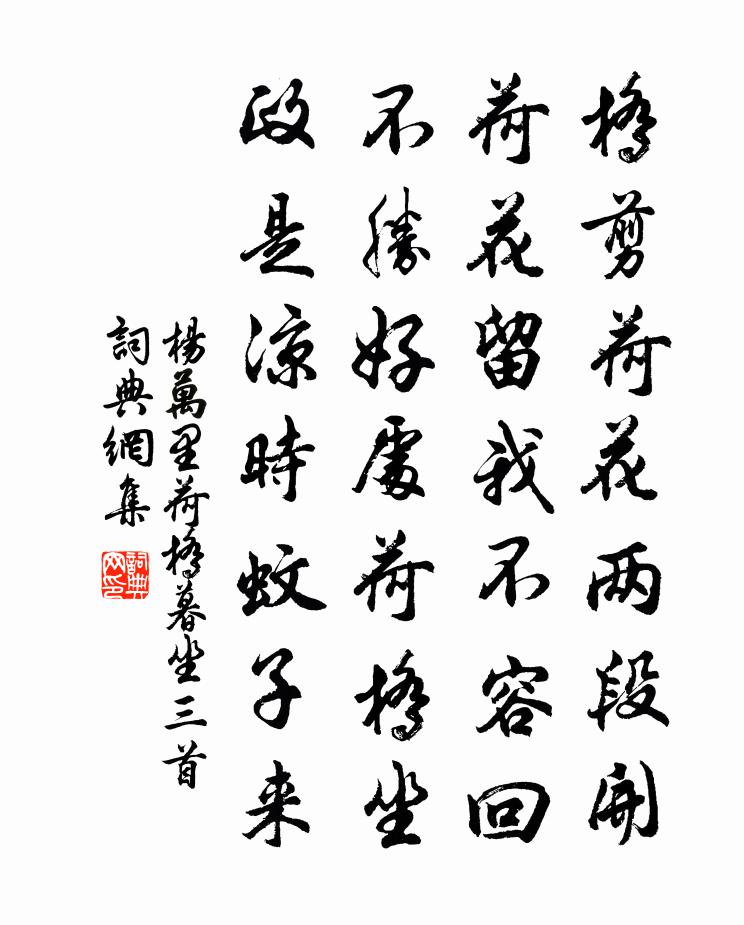 橋剪荷花两段開
荷花留我不容回
不勝好處荷橋坐
政是涼時蚊子来
楊萬里荷橋暮坐三首
詞典網集
詞典网印